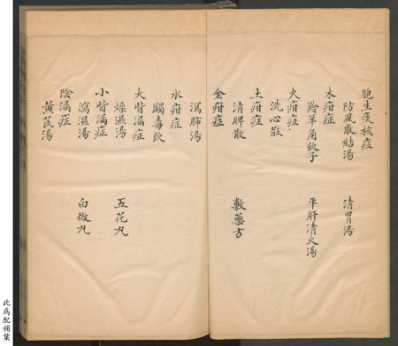 胞生痰核症
防風散結湯 清胃湯
木疳症
羚羊角飲子 平肝清火湯
火疳症
洗心散
土疳症
清脾散 敷藥方
金疳症
瀉肺湯
水疳症
鬮毒飲
大眥漏症
燥濕湯 五花丸
小眥漏症
瀉濕湯 白薇丸
陰漏症
黃芪湯
此爲配補葉